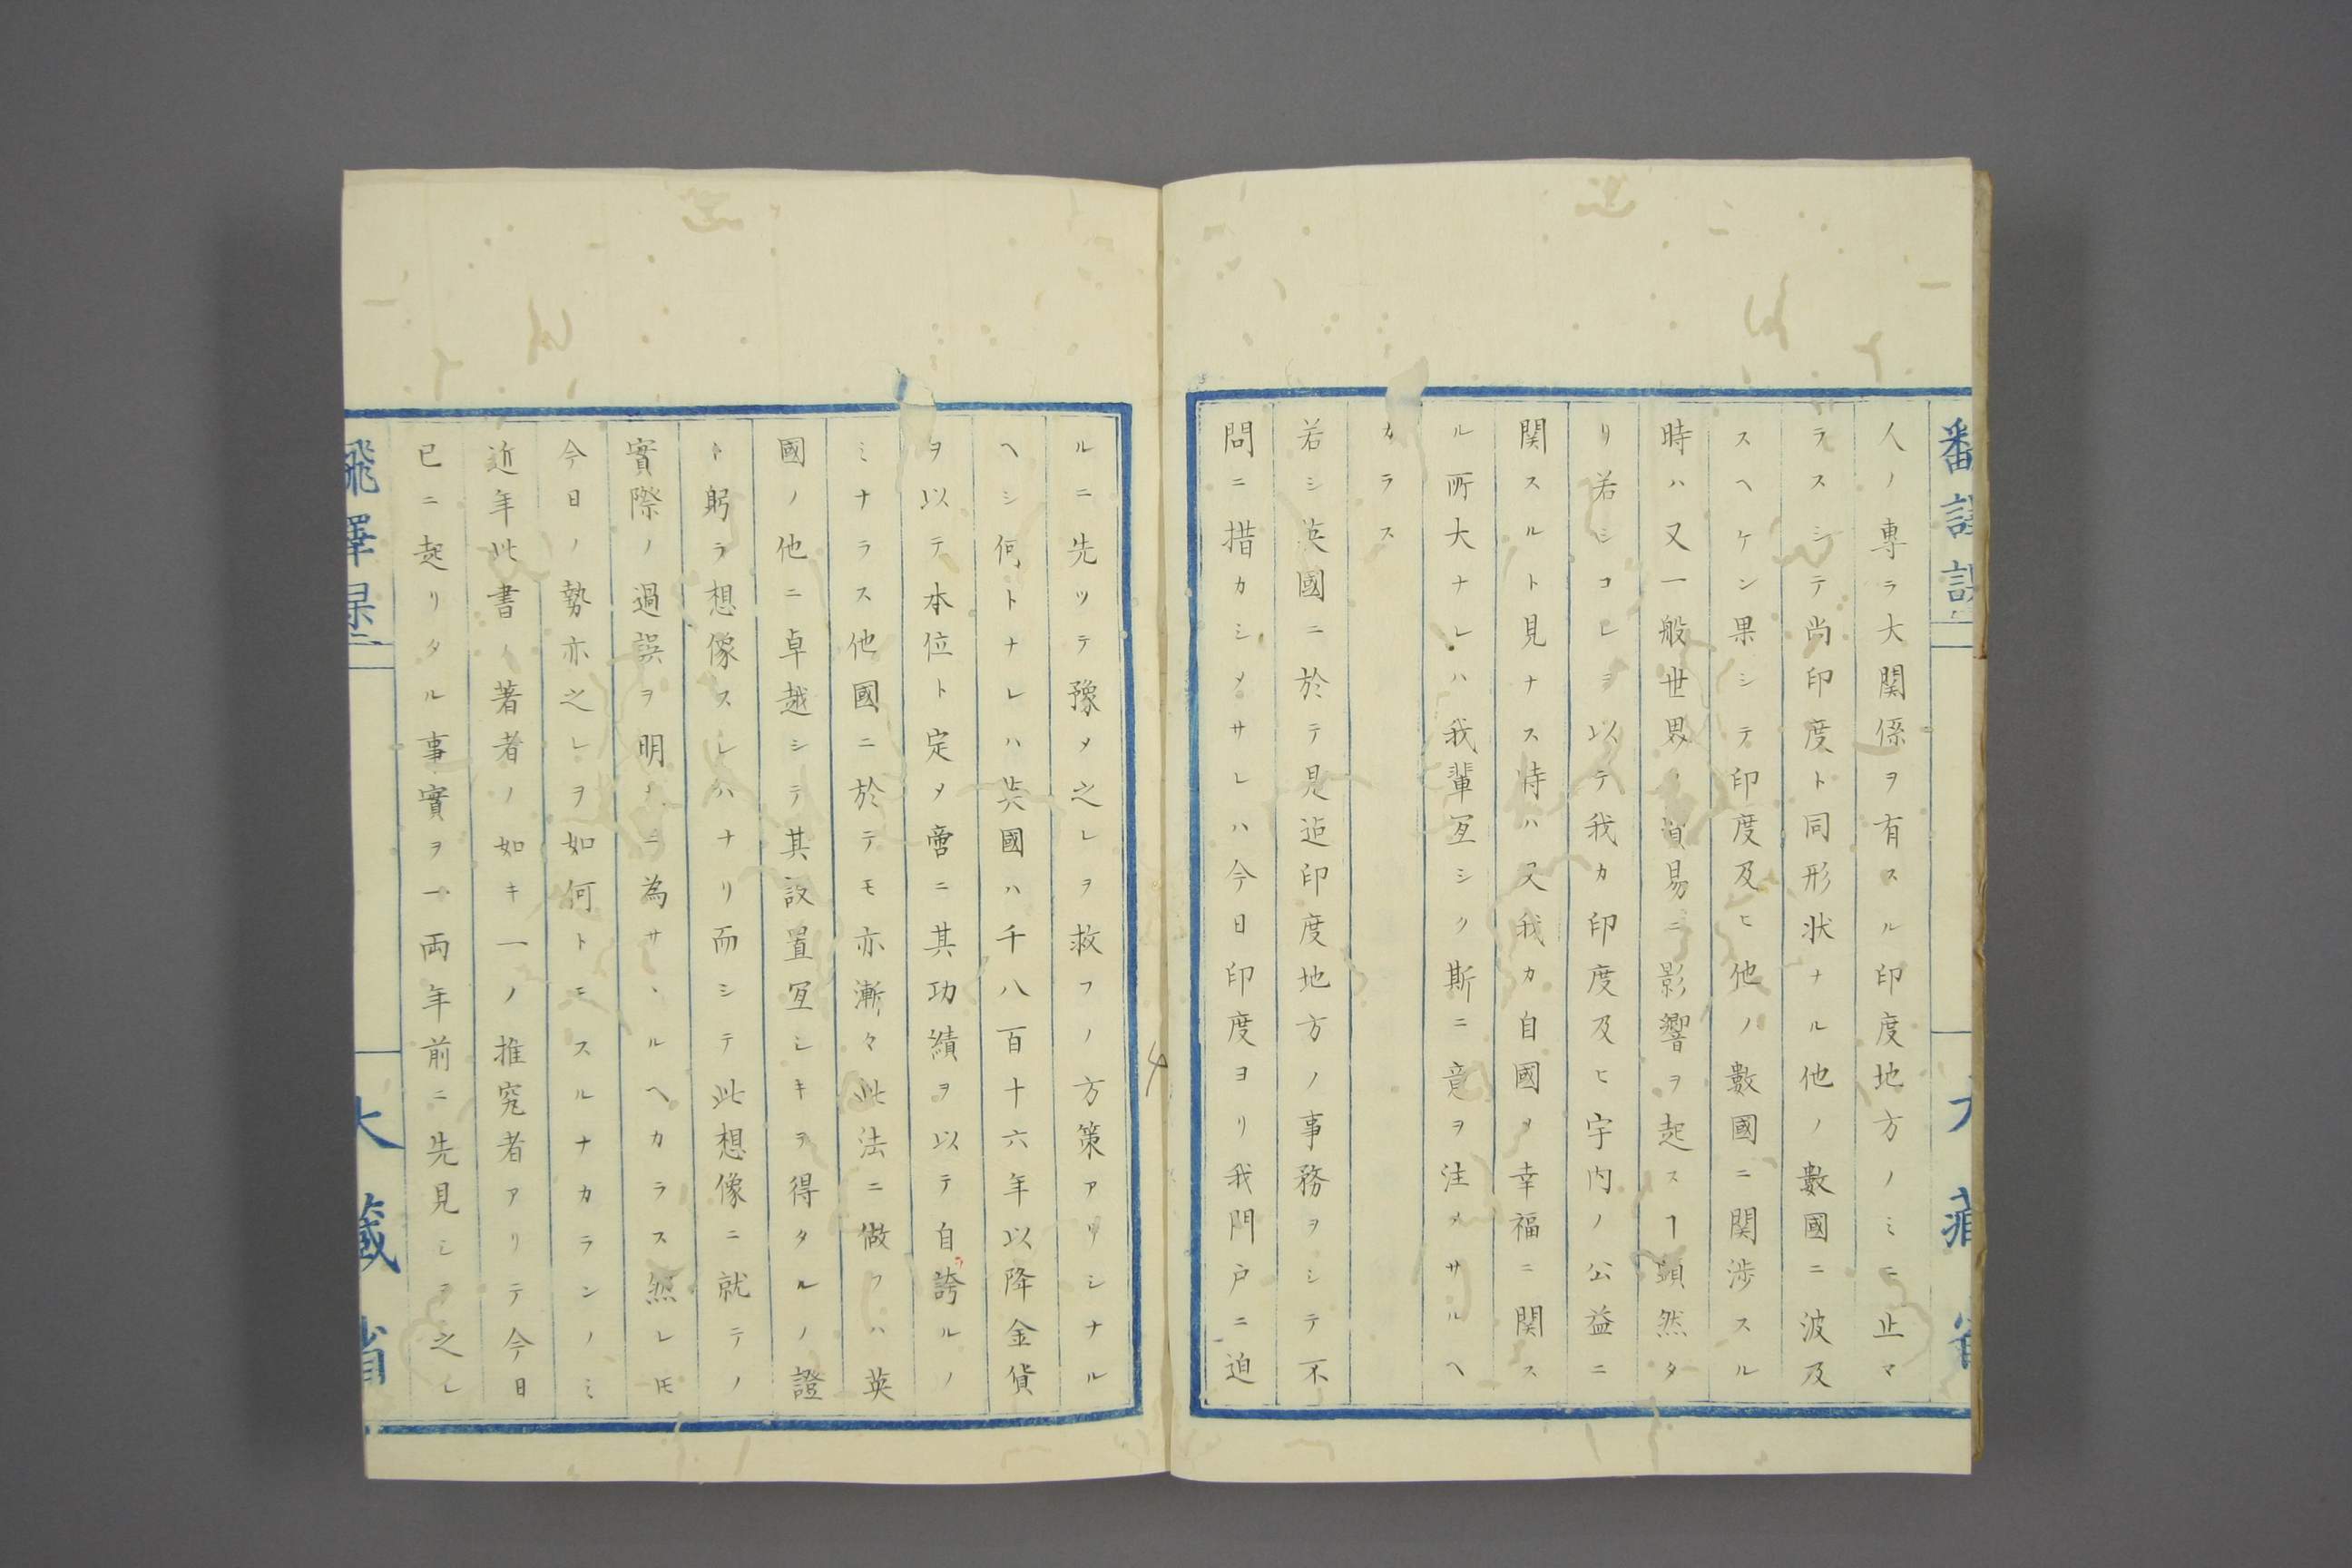 人ノ專ラ大関係ヲ有スル印度地方ノミニ止マ
ラスシテ尚印度ト同形状ナル他ノ數國ニ波及
スヘケン果シテ印度及ヒ他ノ數國ニ関渉スル
時ハ又一般世界ノ貿易ニ影響ヲ起スヿ顕然タ
リ若シコレヲ以テ我カ印度及ヒ宇内ノ公益ニ
関スルト見ナス時ハ又我カ自國ノ幸福ニ関ス
ル所大ナレハ我輩宜シク斯ニ意ヲ注メサルヘ
カラス
若シ英國ニ於テ見迠印度地方ノ事務ヲシテ不
問ニ措カシメサレハ今日印度ヨリ我門戸ニ迫
ルニ先ツテ豫メ之レヲ救フノ方策アリシナル
ヘシ何トナレハ英國ハ千八百十六年以降金貨
ヲ以テ本位ト定メ啻ニ其功績ヲ以テ自誇ルノ
ミナラス他國ニ於テモ亦漸々此法ニ倣フハ英
國ノ他ニ卓越シテ其設置宜シキヲ得タルノ證
ト躬ラ想像スレハナリ而シテ此想像ニ就テノ
實際ノ過誤ヲ明ニ為サヽルヘカラス然レ𪜈
今日ノ勢亦之レヲ如何トモスルナカランノミ
近年此書ノ著者ノ如キ一ノ推究者アリテ今日
已ニ起リタル事實ヲ一両年前ニ先見シテ之レ
大藏省